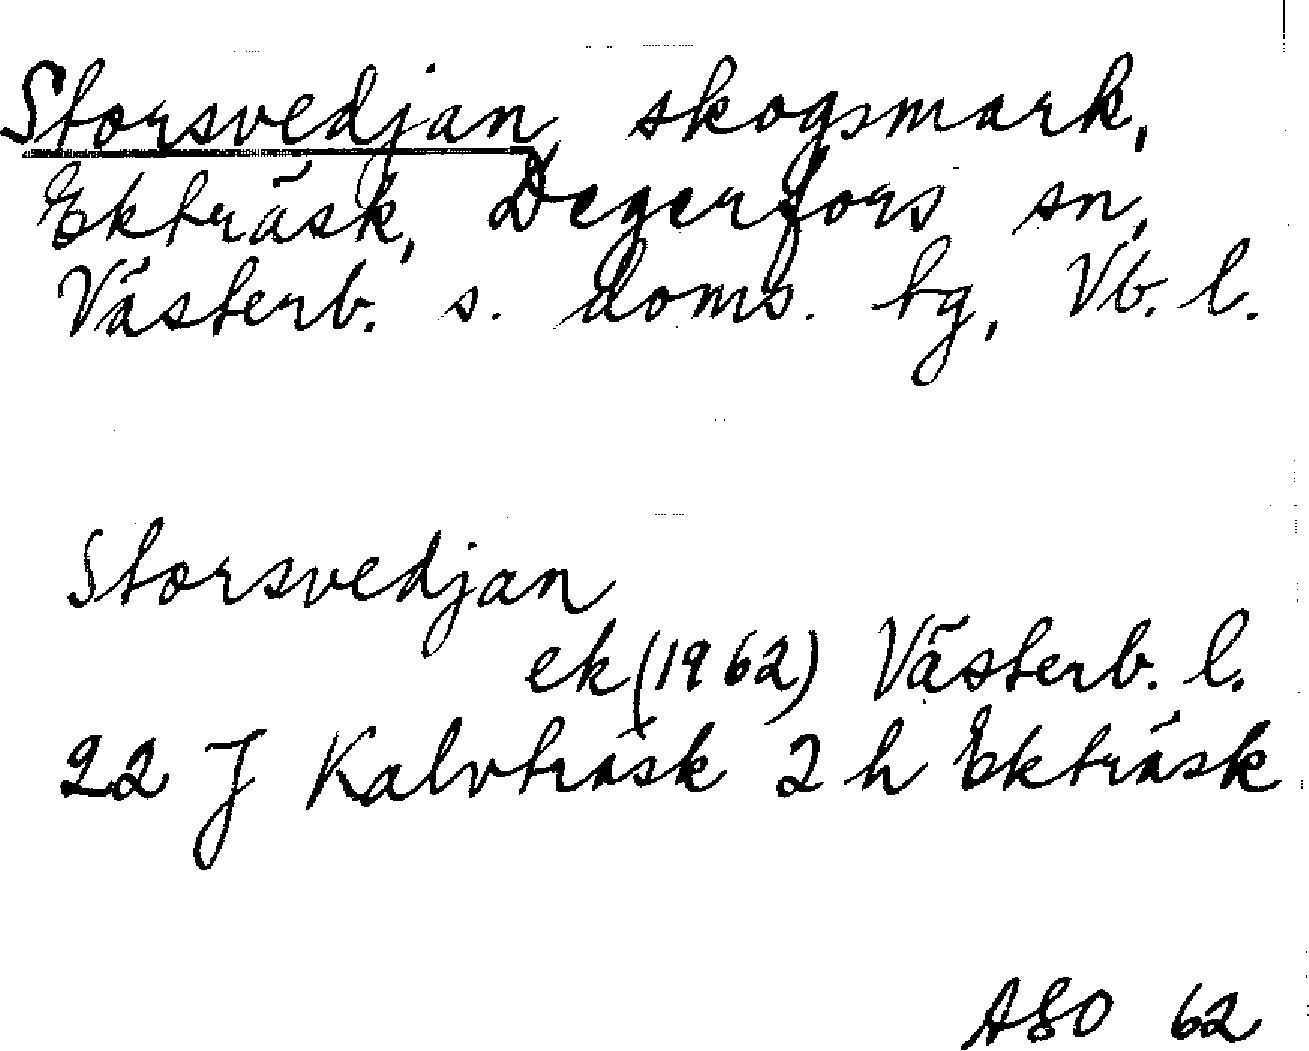 Storsvedjan, skogsmark,
Ekträsk, Degerfors sn,
Västerb. s. doms. tg, Vb. l.
Storsvedjan
ek (1962) Västerb. l.
22 J Kalvträsk 2 h Ekträsk
ASO 62